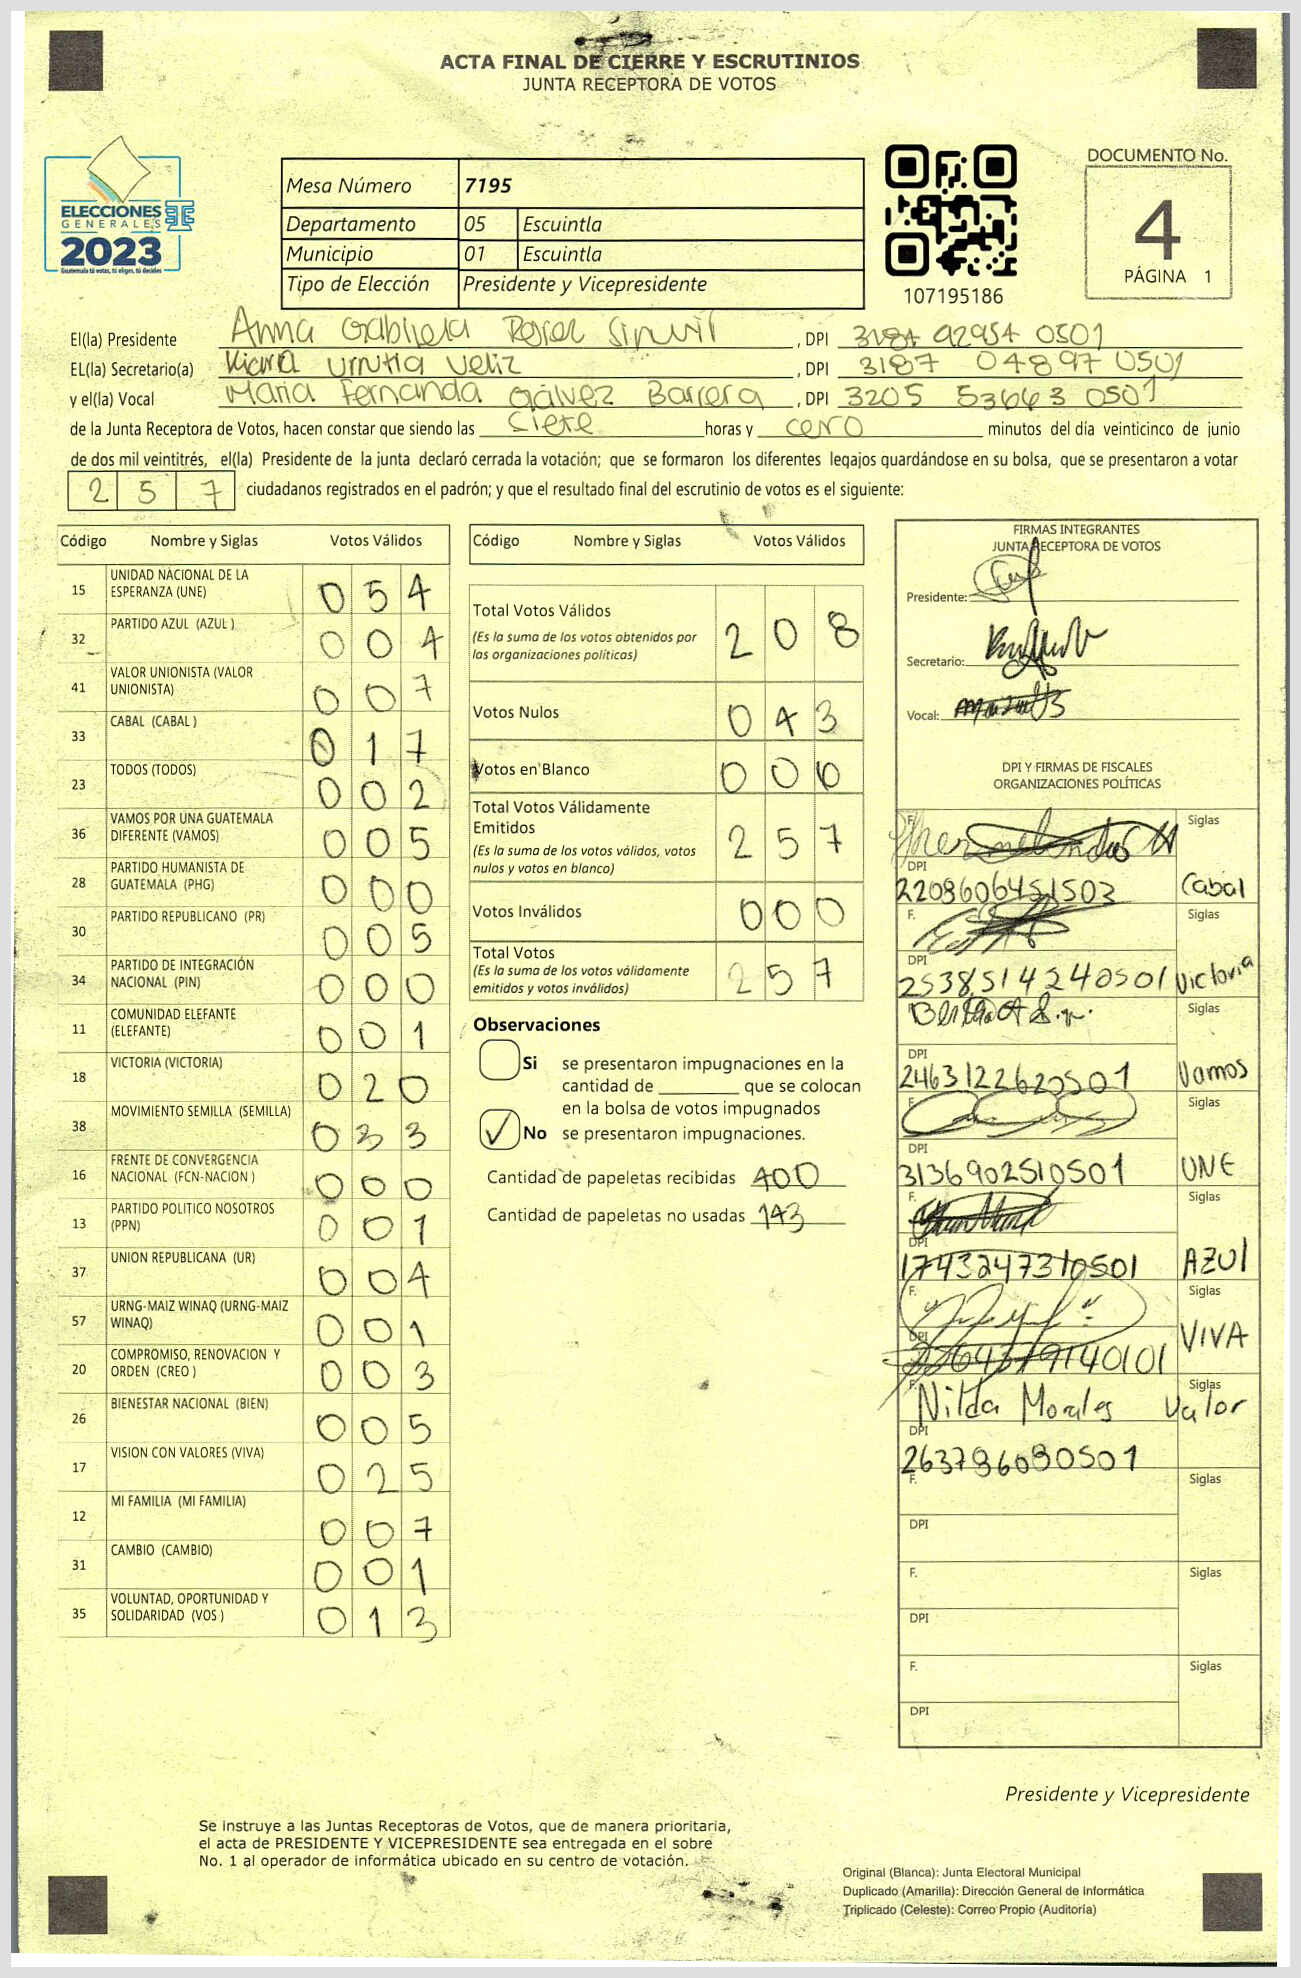 ACTA FINAL DE CIERRE Y ESCRUTINIOS
JUNTA RECEPTORA DE VOTOS
ELECCIONES
GENERALES
2023
Guatemala tú votas, tú eliges, tú decides
Mesa Número 7195
Departamento 05 Escuintla
Municipio 01 Escuintla
Tipo de Elección Presidente y Vicepresidente
107195186
DOCUMENTO No.
4
PÁGINA 1
El(la) Presidente Anna Gabriela , DPI 3187 92954 0501
EL(la) Secretario(a) Kiara Urrutia Veliz , DPI 3187 04897 0501
y el(la) Vocal Maria Fernanda Gálvez Barrera , DPI 3205 53663 0501
de la Junta Receptora de Votos, hacen constar que siendo las Siete horas y cero minutos del día veinticinco de junio
de dos mil veintitrés, el(la) Presidente de la junta declaró cerrada la votación; que se formaron los diferentes legajos guardándose en su bolsa, que se presentaron a votar
257 ciudadanos registrados en el padrón; y que el resultado final del escrutinio de votos es el siguiente:
Código Nombre y Siglas Votos Válidos
15 UNIDAD NACIONAL DE LA ESPERANZA (UNE) 054
32 PARTIDO AZUL (AZUL ) 004
41 VALOR UNIONISTA (VALOR UNIONISTA) 007
33 CABAL (CABAL ) 017
23 TODOS (TODOS) 002
36 VAMOS POR UNA GUATEMALA DIFERENTE (VAMOS) 005
28 PARTIDO HUMANISTA DE GUATEMALA (PHG) 000
30 PARTIDO REPUBLICANO (PR) 005
34 PARTIDO DE INTEGRACIÓN NACIONAL (PIN) 000
11 COMUNIDAD ELEFANTE (ELEFANTE) 001
18 VICTORIA (VICTORIA) 020
38 MOVIMIENTO SEMILLA (SEMILLA) 033
16 FRENTE DE CONVERGENCIA NACIONAL (FCN-NACION ) 000
13 PARTIDO POLITICO NOSOTROS (PPN) 001
37 UNION REPUBLICANA (UR) 004
57 URNG-MAIZ WINAQ (URNG-MAIZ WINAQ) 001
20 COMPROMISO, RENOVACION Y ORDEN (CREO ) 003
26 BIENESTAR NACIONAL (BIEN) 005
17 VISION CON VALORES (VIVA) 025
12 MI FAMILIA (MI FAMILIA) 007
31 CAMBIO (CAMBIO) 001
35 VOLUNTAD, OPORTUNIDAD Y SOLIDARIDAD (VOS ) 013
Código Nombre y Siglas Votos Válidos
Total Votos Válidos 208
(Es la suma de los votos obtenidos por
las organizaciones politicas)
Votos Nulos 043
Votos en Blanco 000
Total Votos Válidamente
Emitidos 257
(Es la suma de los votos válidos, votos
nulos y votos en blanco)
Votos Inválidos 000
Total Votos 257
(Es la suma de los votos válidamente
emitidos y votos inválidos)
Observaciones
Si se presentaron impugnaciones en la
cantidad de ________ que se colocan
en la bolsa de votos impugnados
No se presentaron impugnaciones.
Cantidad de papeletas recibidas 400
Cantidad de papeletas no usadas 143
FIRMAS INTEGRANTES
JUNTA RECEPTORA DE VOTOS
Presidente:
Secretario:
Vocal:
DPI Y FIRMAS DE FISCALES
ORGANIZACIONES POLÍTICAS
F. Siglas
DPI
2209606451503 Cabal
F. Siglas
DPI
2538514240501 Victoria
Siglas
DPI
2463122620501 Vamos
F. Siglas
DPI
3136902510501 UNE
F. Siglas
DPI
1743247310501 AZUL
F. Siglas
DPI
VIVA
F. Nilda Morales Siglas Valor
DPI
263796080501
F. Siglas
DPI
F. Siglas
DPI
F. Siglas
DPI
Presidente y Vicepresidente
Se instruye a las Juntas Receptoras de Votos, que de manera prioritaria,
el acta de PRESIDENTE Y VICEPRESIDENTE sea entregada en el sobre
No. 1 al operador de informática ubicado en su centro de votación.
Original (Blanca): Junta Electoral Municipal
Duplicado (Amarilla): Dirección General de Informática
Triplicado (Celeste): Correo Propio (Auditoría)